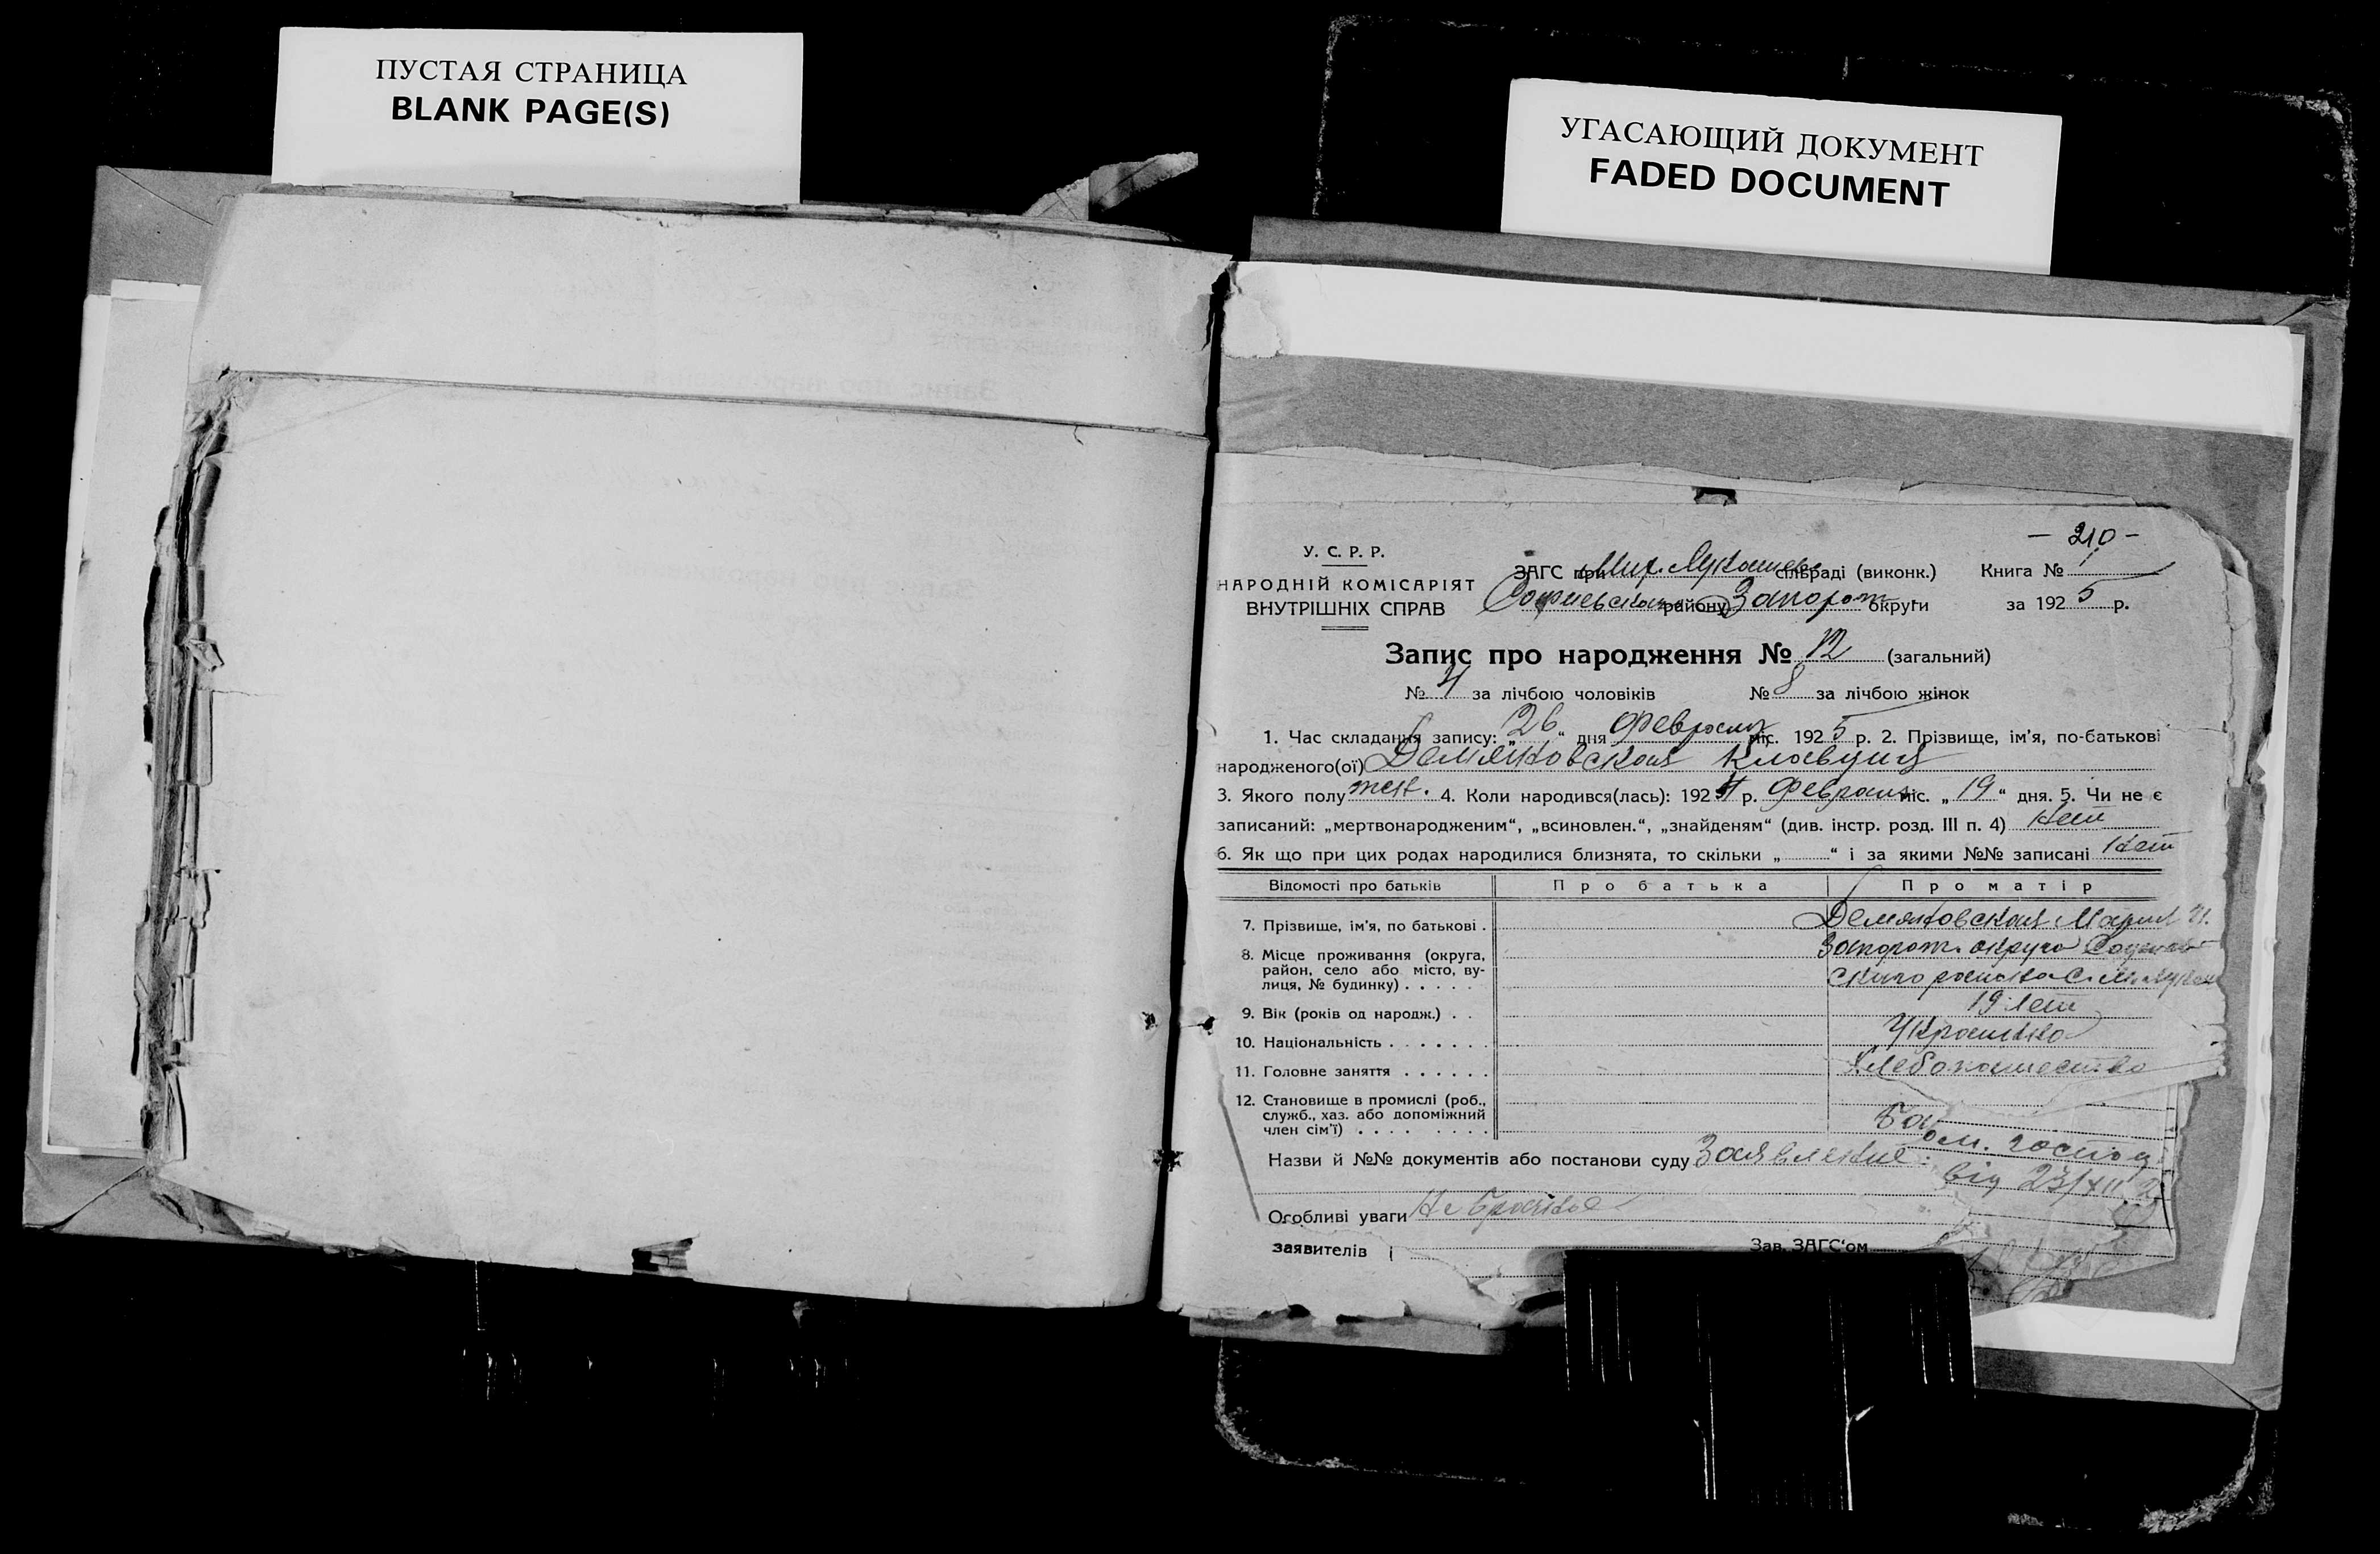 ПУСТАЯ СТРАНИЦА
BLANK PAGE(S)
УГАСАЮЩИЙ ДОКУМЕНТ
FADED DOCUMENT
- 210 -
У. С. Р. Р.
НАРОДНІЙ КОМІСАРІЯТ
ВНУТРІШНІХ СПРАВ
ЗАГС при Мих. Лукашево сільраді (виконк.) Книга № 1
Софиевского району Запорож округи за 1925 р.
Запис про народження № 12 (загальний)
№ 4 за лічбою чоловіків № 8 за лічбою жінок
1. Час складання запису: „26“ дня Февраля міс. 1925 р. 2. Прізвище, ім’я, по-батькові
народженого(ої) Демяновская Клавдия
3. Якого полу жен. 4. Коли народився(лась): 192 р. Февраля міс. „19“ дня. 5. Чи не є
записаний: „мертвонародженим“, „всиновлен.“, „знайденям“ (див. інстр. розд. III п. 4) Нет
6. Як що при цих родах народилися близнята, то скільки „ “ і за якими №№ записані Нет
Відомості про батьків Про батька Про матір
7. Прізвище, ім’я, по батькові . Демяновская Мария
8. Місце проживання (округа, Запорож. округа
район, село або місто, ву-
лиця, № будинку) . . . . . ского района С.
9. Вік (років од народж.) . . 19 лет
10. Національність . . . . . . Украинка
11. Головне заняття . . . . . . Хлебопашество
12. Становище в промислі (роб.,
служб., хаз. або допоміжний
член сім’ї) . . . . . . . .
Назви й №№ документів або постанови суду Заявление
від 23/XII
Особливі уваги
заявителів
Зав. ЗАГС‘ом